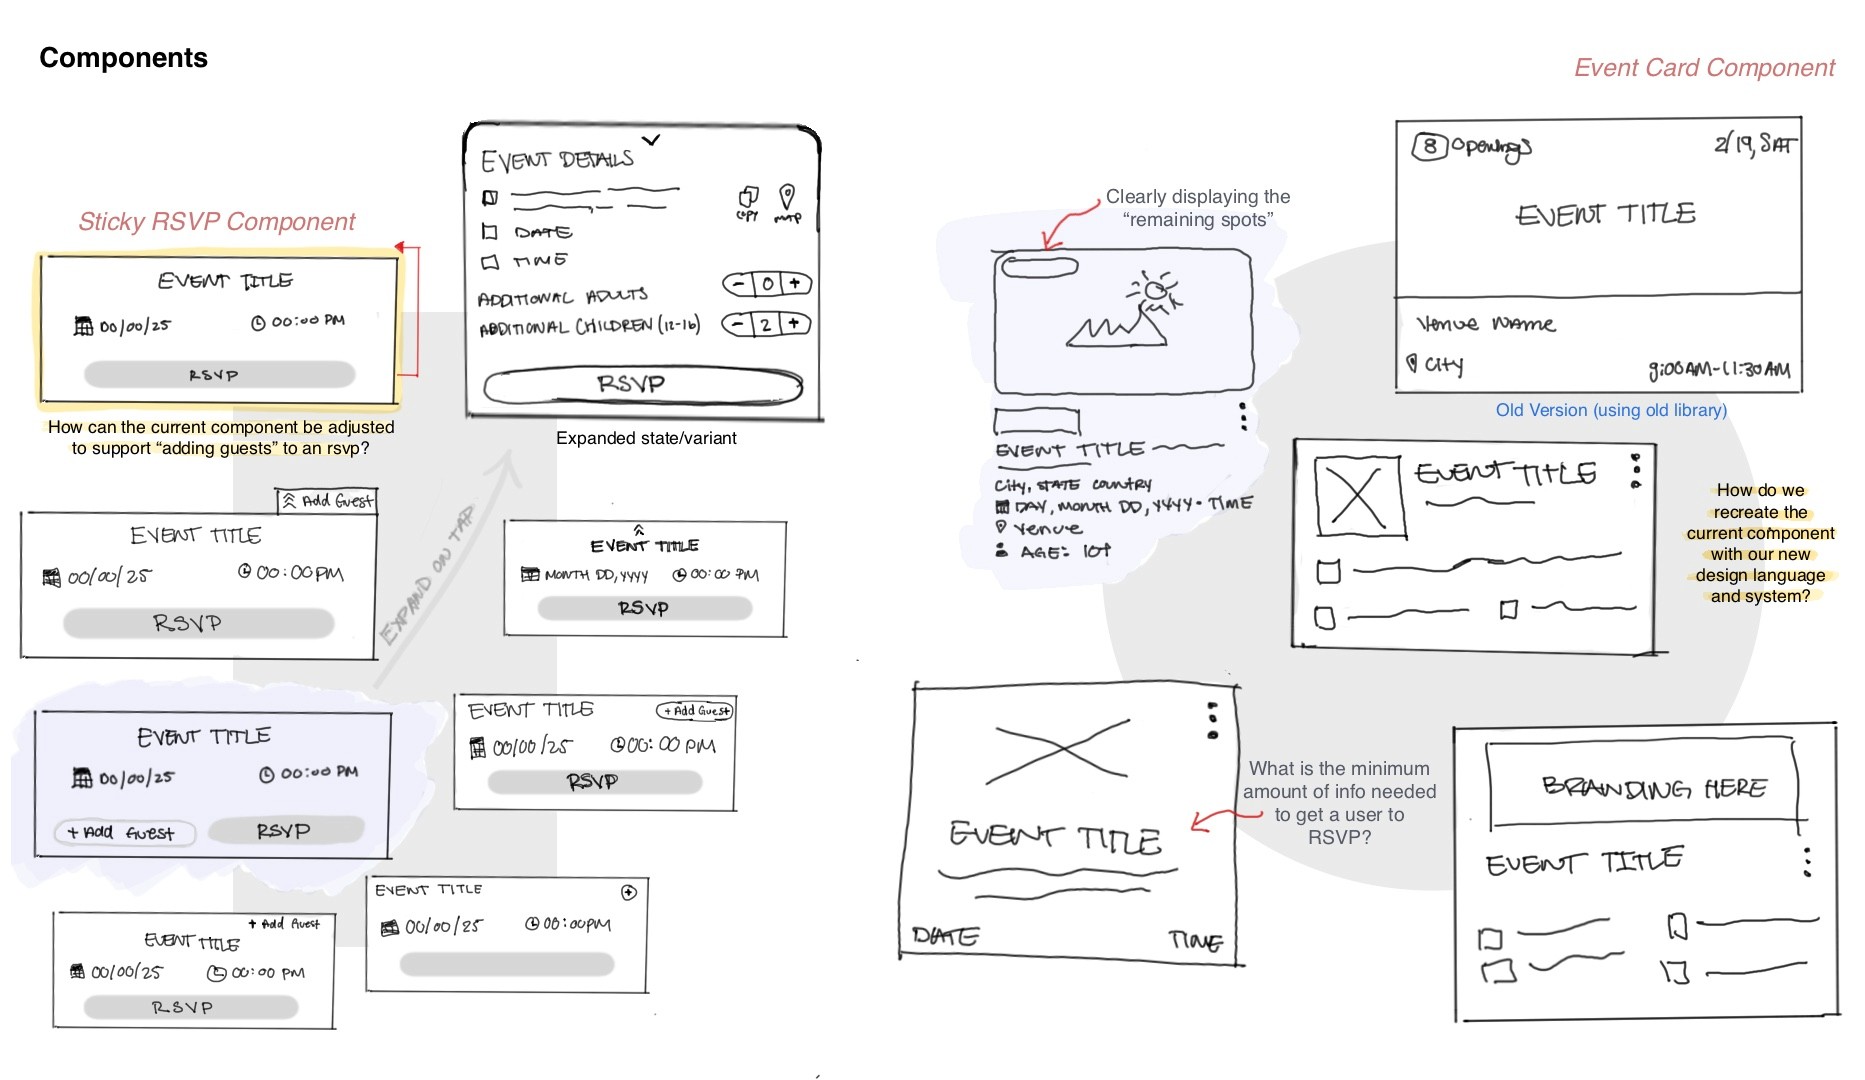 Components
Event Card Component
Sticky RSVP Component
EVENT TITLE
00/00/25
00:00 PM
RSVP
How can the current component be adjusted
to support “adding guests” to an rsvp?
EVENT DETAILS
COPY
MAP
DATE
TIME
ADDITIONAL ADULTS
- 0 +
ADDITIONAL CHILDREN (12-16)
- 2 +
RSVP
Expanded state/variant
Add Guest
EVENT TITLE
00/00/25
00:00PM
RSVP
EXPAND ON TAP
EVENT TITLE
MONTH DD, YYYY
00:00 PM
RSVP
EVENT TITLE
00/00/25
00:00 PM
+ Add Guest
RSVP
EVENT TITLE
+ Add Guest
00/00/25
00:00 PM
RSVP
+ Add Guest
EVENT TITLE
00/00/25
00:00 PM
RSVP
EVENT TITLE
+
00/00/25
00:00PM
Clearly displaying the
“remaining spots”
EVENT TITLE
CITY, STATE COUNTRY
DAY, MONTH DD, YYYY - TIME
Venue
AGE: 10+
8 Openings
2/19, SAT
EVENT TITLE
Venue NAME
City
9:00AM-11:30AM
Old Version (using old library)
EVENT TITLE
How do we
recreate the
current component
with our new
design language
and system?
EVENT TITLE
DATE
TIME
What is the minimum
amount of info needed
to get a user to
RSVP?
BRANDING HERE
EVENT TITLE